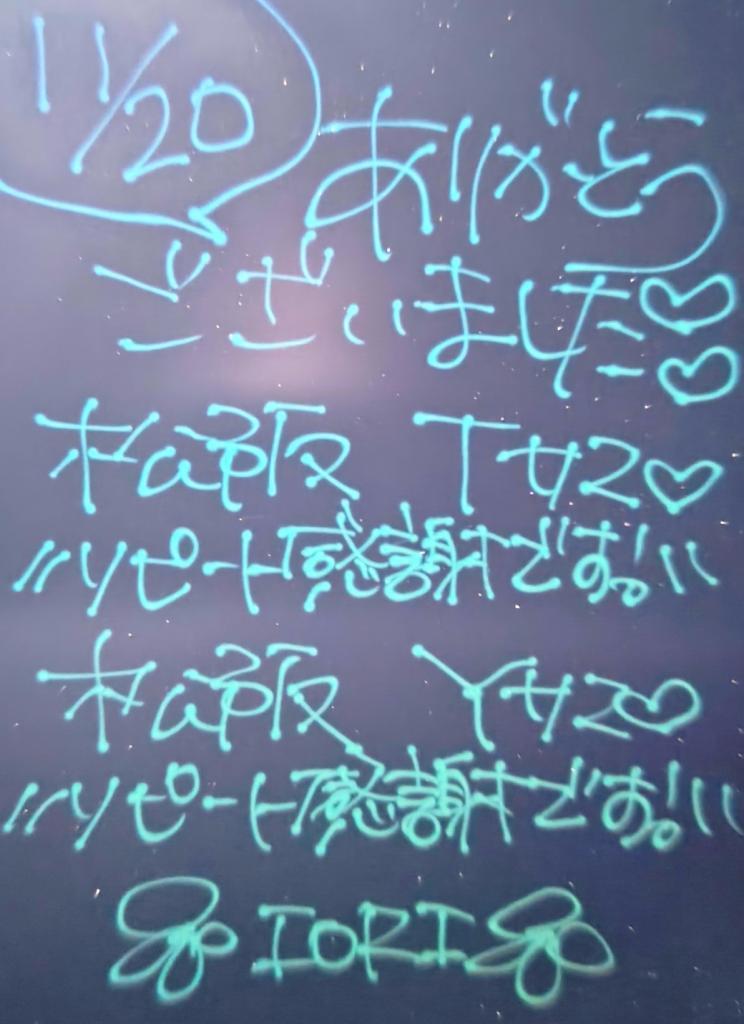 11/20
ありがとう
ございました♡♡
松阪 Tサマ♡
\\リピート感謝です!!//
松阪 Yサマ♡
\\リピート感謝です!!//
IORI